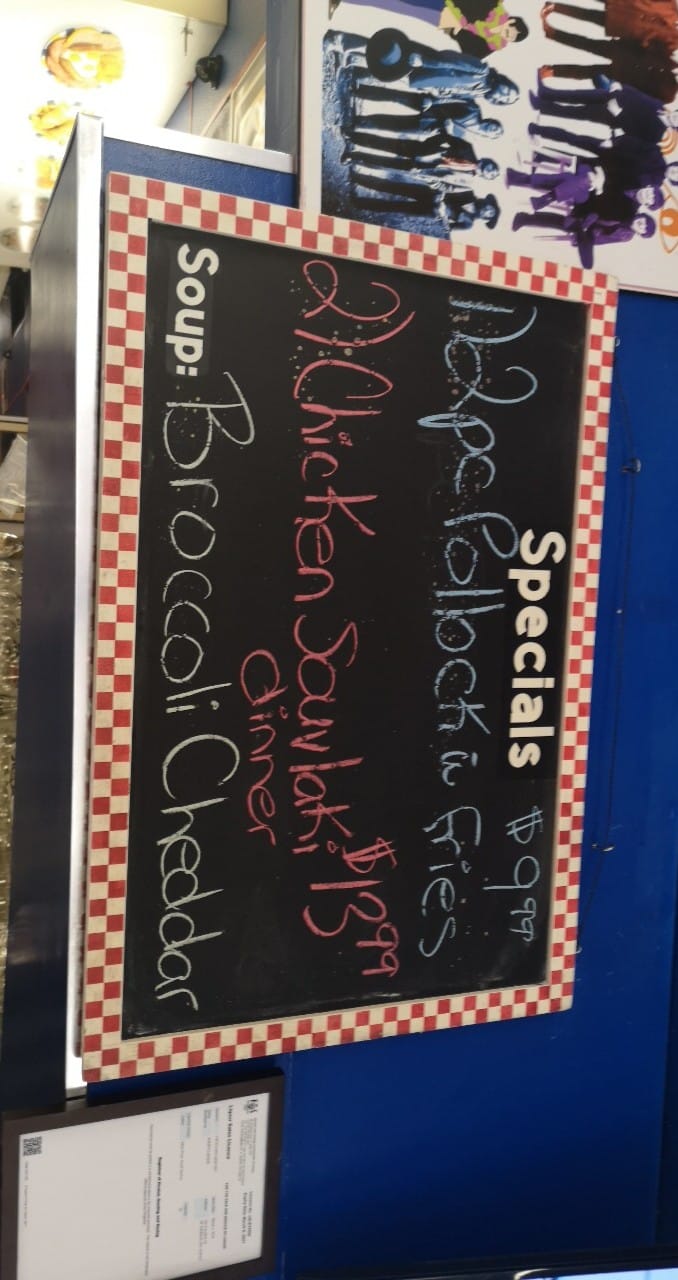 Specials
$9.99
1) 2pc Pollock & fries
2) Chicken Souvlaki $13.99
dinner
Soup: Broccoli Cheddar
Liquor Sales Licence